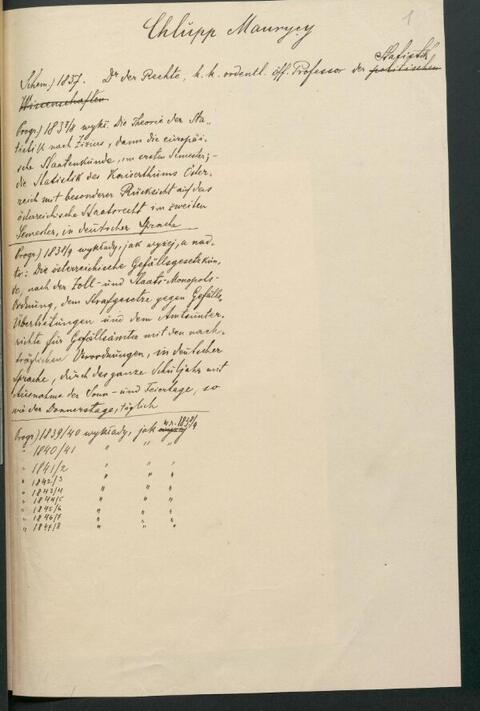 1
Chlupp Maurycy
Schem.) 1837. Dr der Rechte, k. k. ordentl. öff. Professor der politischen Statistik
Wissenschaften
Progr.) 1837/8 wykł. Die Theorie der Sta-
tistik nach Zizius, dann die europäi-
sche Staatenkunde, im ersten Semester; -
die Statistik des Kaiserthums Öster-
reich mit besonderer Rücksicht auf das
österreichische Staatsrecht im zweiten
Semester, in deutscher Sprache
Progr.) 1838/9 wykłady, jak wyżej, a nad-
to: Die österreichische Gefällsgesetzkun-
de, nach der Zoll- und Staats-Monopols-
Ordnung, dem Strafgesetze gegen Gefälls-
Übertretungen und dem Amtsunter-
richte für Gefällsämter mit den nach-
träglichen Verordnungen, in deutscher
Sprache, durch das ganze Schuljahr mit
Ausnahme der Sonn- und Feiertage, so
wie der Donnerstage, täglich
Progr.) 1839/40 wykłady, jak wyżej w r. 1838/9
" 1840/41 " " "
" 1841/2 " " "
" 1842/3 " " "
" 1843/4 " " "
" 1844/5 " " "
" 1845/6 " " "
" 1846/7 " " "
" 1847/8 " " "